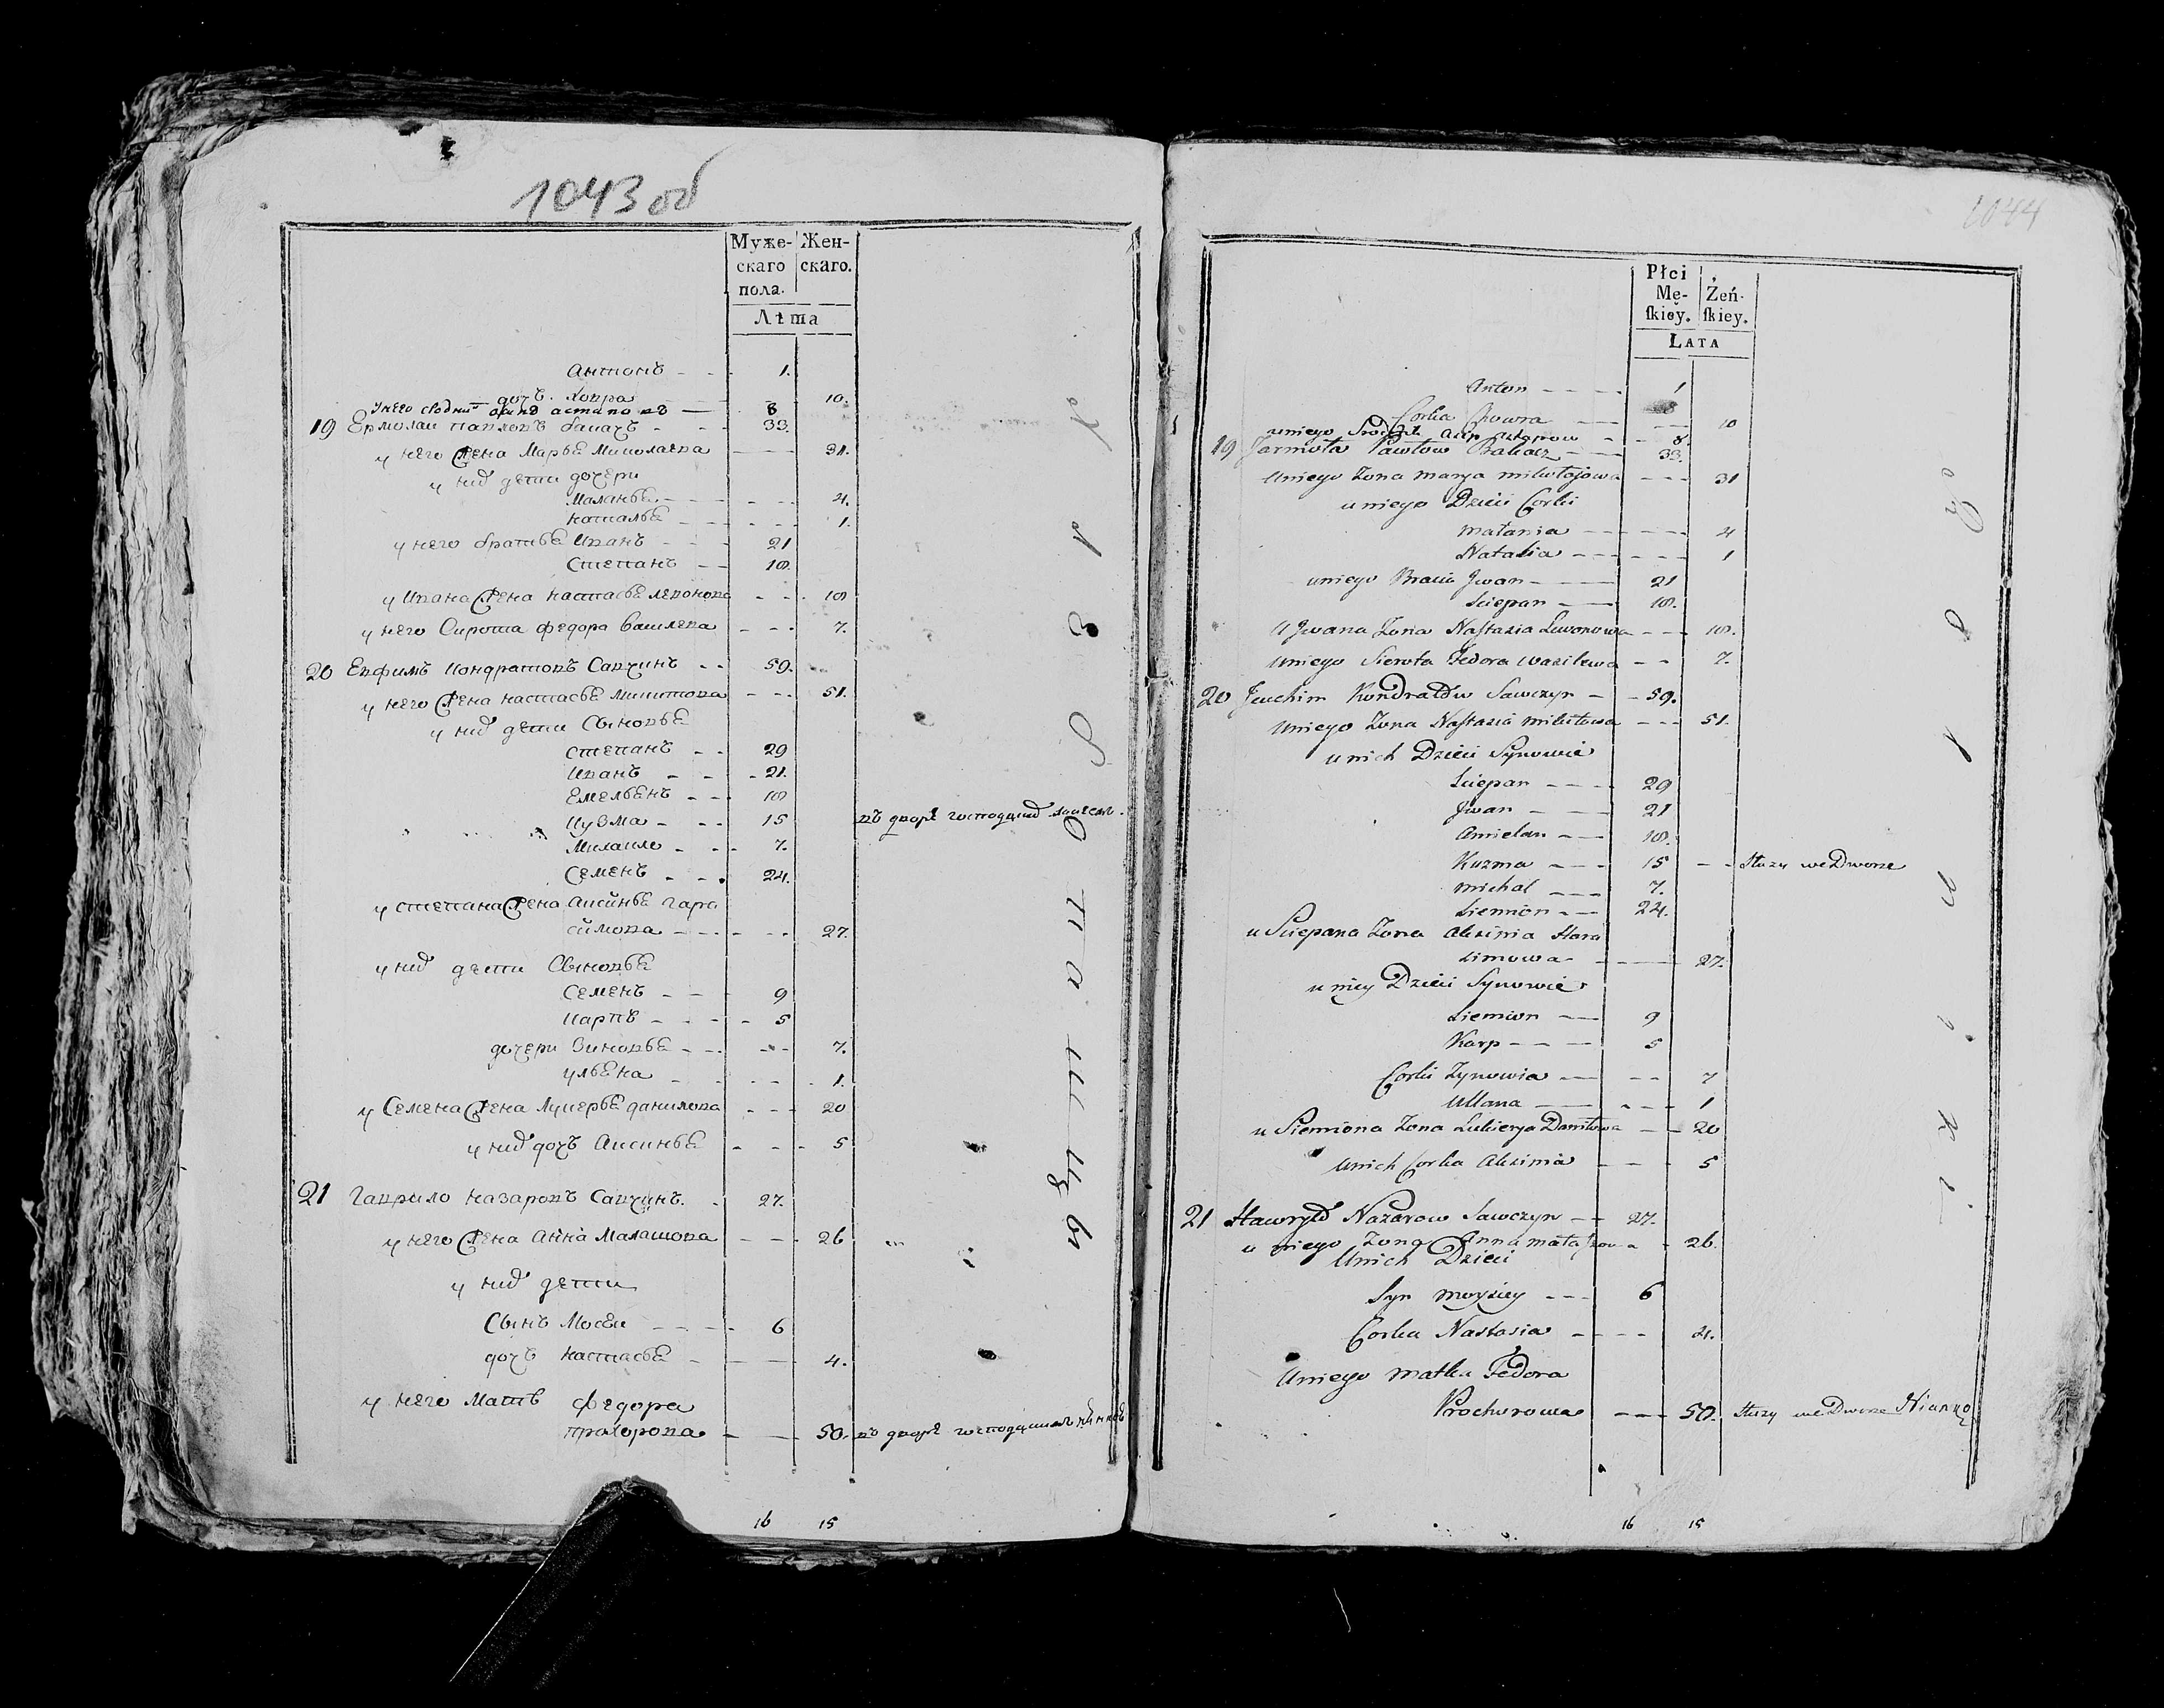 1043 об
Муже-
скаго
пола.
Жен-
скаго.
Лѣта
Антонъ - - 1.
дочъ. Ховра - - 10.
у него сводны Осипъ Астаповъ — 8
19 Ермолаи Павловъ Бакачъ - - 33.
у него жена Марья Миколаева - - - 31.
у них дети дочери
Маланья - - - 4.
Наталья - - - 1.
у него братья Иванъ - - 21
Степанъ - - 18.
у Ивана жена Настасья Левонова - - - 18
у него Сирота Федора Василева - - - 7.
20 Евфимъ Кондратовъ Савчинъ - - 59.
у него жена Настасья Микитова - - - 51.
у них дети Сыновья
Степанъ - - 29
Иванъ - - - 21.
Емельянъ - - 18
Кузма - - - 15 въ дворѣ господским
Михаило - - - 7.
Семенъ - - - 24.
у Степана жена Аксинья Гара
симова - - - - 27.
у них дети Сыновья
Семенъ - - - 9
Карпъ - - - 5
дочери Зиновья - - - 7.
Ульяна - - - 1.
у Семена жена Лукерья Данилова - - - 20
у них дочъ Аксинья - - - 5
21 Гаврило Назаровъ Савчинъ. - 27.
у него жена Анна Малашова - - - 26
у них дети
Сынъ Мосеи - - - 6
дочъ Настасья - - - 4.
у него Мать Федора
Прохорова - - - 50. въ дворѣ господским
16 15
1044
Płci
Mę-
ſkiey.
Żeń-
ſkiey.
LATA
Anton - - - 1
Corka Chowra - - - 10
19 Jarmoła Pawłow Bakacz - - - 33.
Uniego Zona Marya Mikołajowa - - - 31
uniego Dzieci Corki
Matania - - - 4
Natalia - - - 1
uniego Bracia Jwan - - - 21
Sciepan - - - 18.
U Jwana Zona Nastazia Lewonowa - - - 18.
Uniego Sierota Fedora Wasilewa - - 7.
20 Jeuchim Kondratów Sawczyn - - 59.
Uniego Zona Nastazia Mikitowa - - - 51.
unich Dzieci Synowie
Sciepan - - - 29
Jwan - - - 21
Amielan - - - 18.
Kuzma - - - 15 - - Służy we Dworze
Michal - - - 7.
Siemion - - - 24.
u Sciepana Zona Alizinia Hara
simowa - - - 27.
u niey Dzieci Synowie
Siemion - - - 9
Karp - - - 5
Corki Zynowia - - - 7
Ullana - - - 1
u Siemiona Zona Lukierya Daniłowa - - 20
Unich Corka Alizinia - - - 5
21 Hawryło Nazarow Sawczyn - - 27.
u niego Zona Anna - 26.
Unich Dzieci
Syn Moyziey - - - 6
Corka Nastasia - - - 4.
Uniego Matka Fedora
Prochorowa - - - 50. Służy we Dworze Nianką
16 15